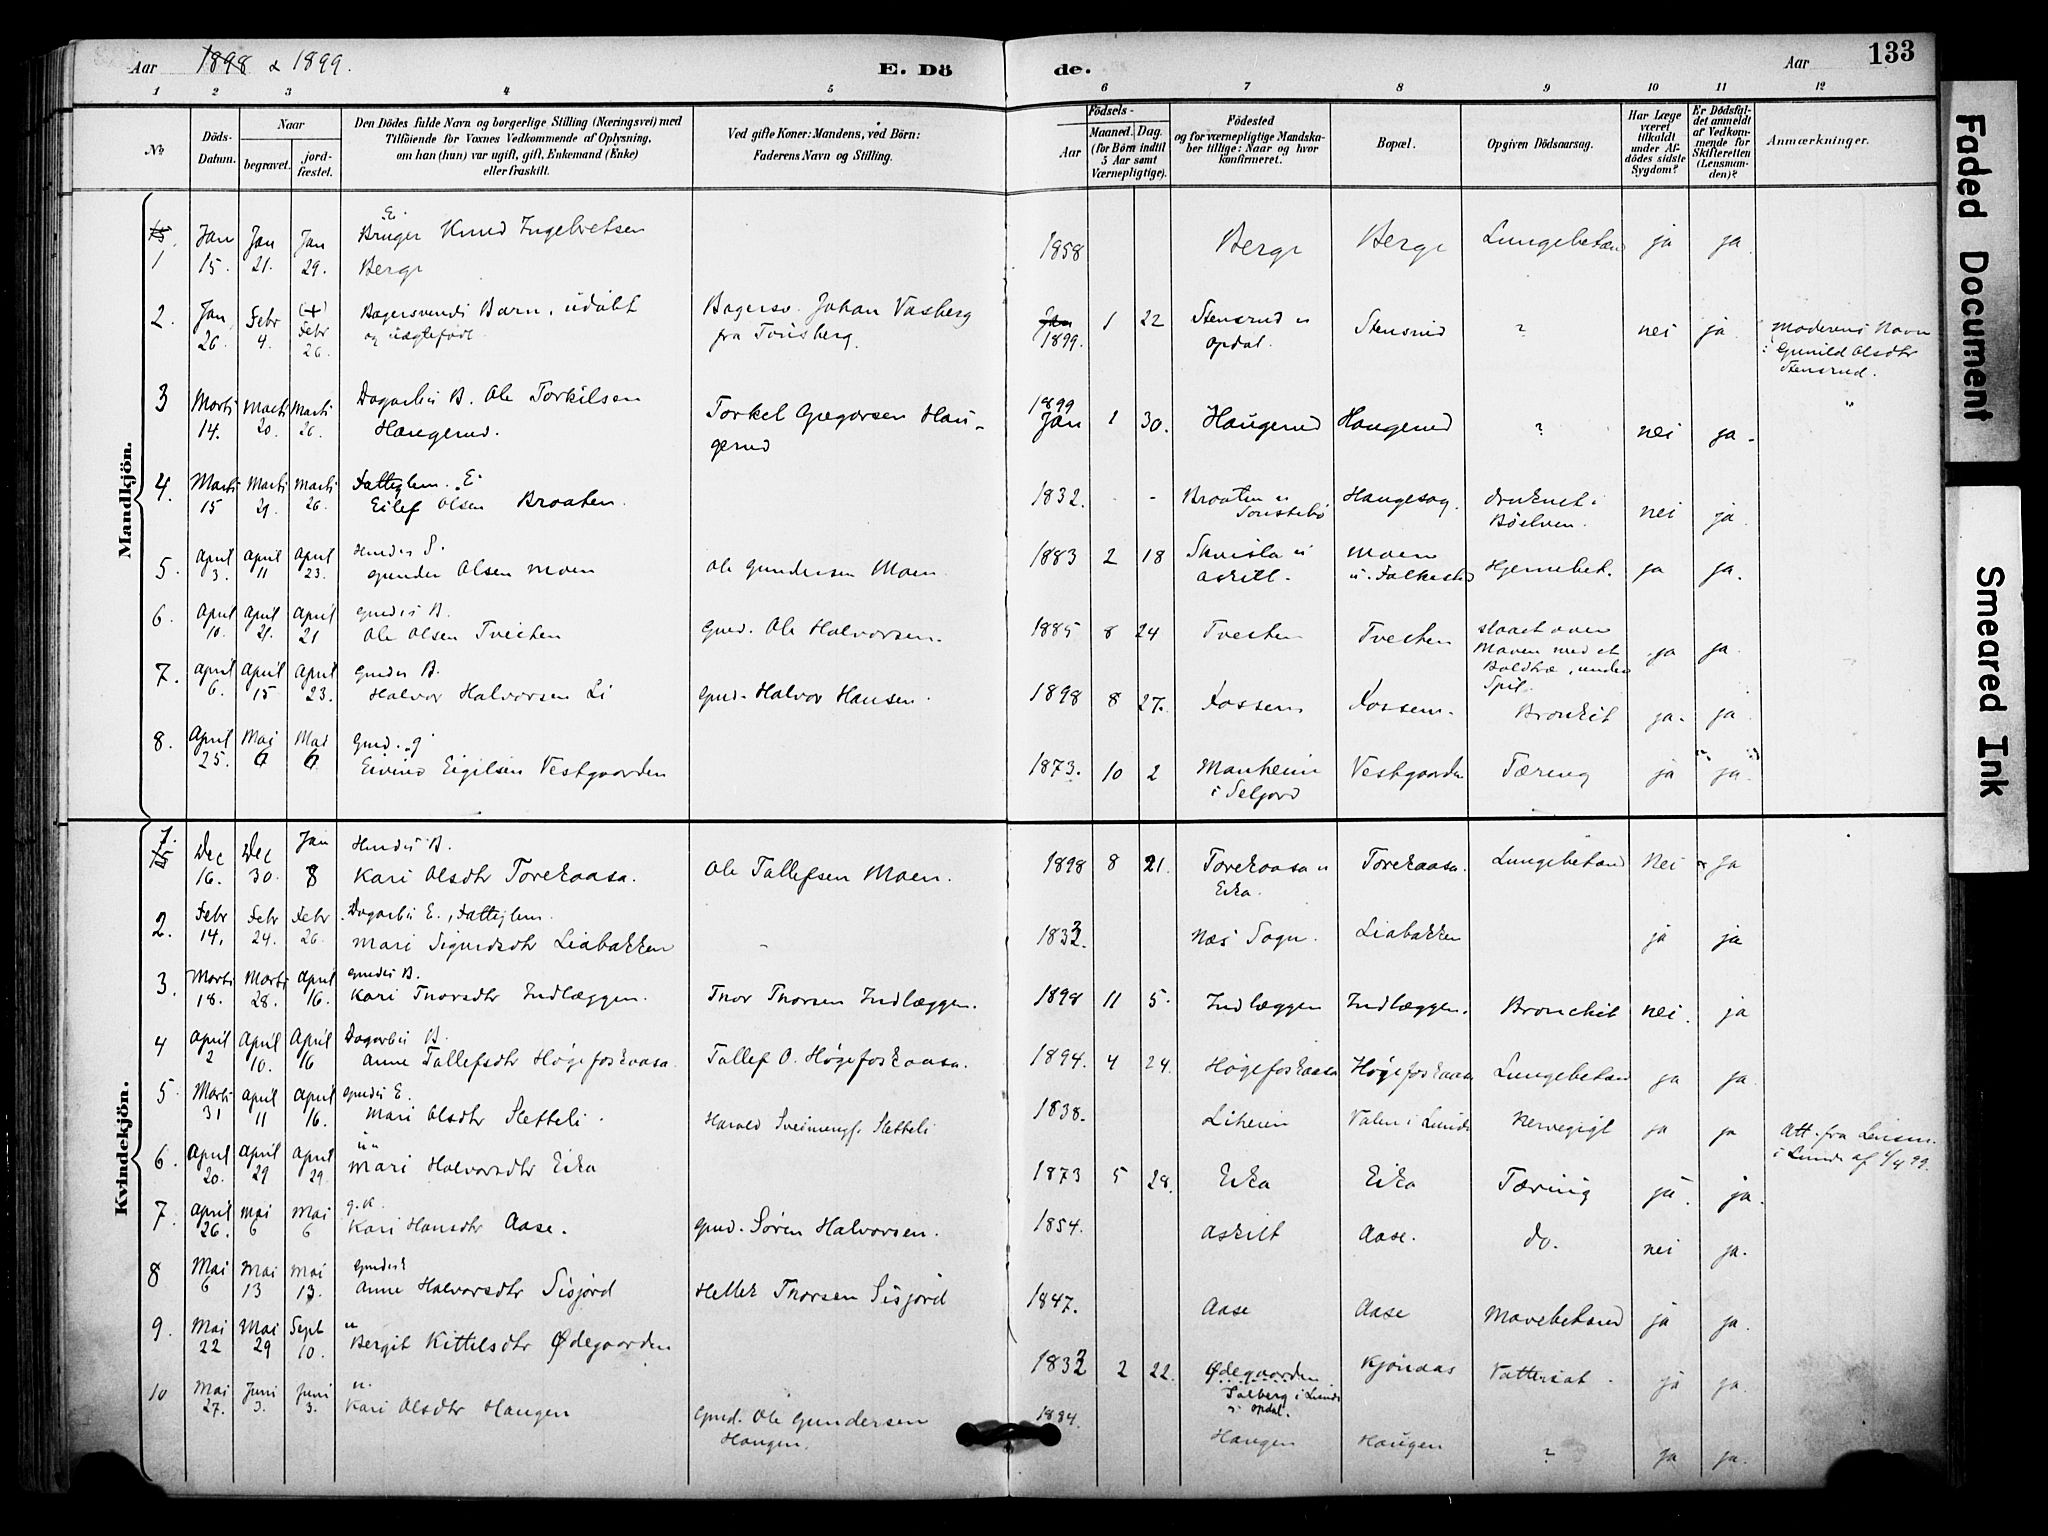 Aar 1898 & 1899.
E. Dö de.
Aar
133
1 2 3 4 5 6 7 8 9 10 11 12
No
Döds-Datum.
Naar
begravet.
jord-fæstet.
Den Dödes fulde Navn og borgerlige Stilling (Næringsvei) med
Tilföiende for Voxnes Vedkommende af Oplysning,
om han (hun) var ugift, gift, Enkemand (Enke)
eller fraskilt.
Ved gifte Koner: Mandens, ved Börn:
Faderens Navn og Stilling.
Födsels-
Aar
Maaned. Dag.
(for Börn indtil
5 Aar samt
Værnepligtige).
Födested
og for værnepligtige Mandska-
ber tillige: Naar og hvor
konfirmeret.
Bopæl.
Opgiven Dödsaarsag.
Har Læge
været
tilkaldt
under Af-
dödes sidste
Sygdom?
Er Dödsfal-
det anmeldt
af Vedkom-
mende for
Skifteretten
(Lensman-
den)?
Anmærkninger.
Mandkjön.
1 Jan 15. Jan 21. Jan 29. Bruger Knud Ingebretsen Berge 1858 Berge Berge Lungebetænd ja ja
2. Jan 26. Febr 4. (+) Febr 26. Bagersvends Barn, udøbt og uægtefødt. Bagersv. Johan Vasberg fra Tønsberg. 1899. 1 22 Stensrud u Opdal. Stensrud ? nei ja Moderens Navn: Gunild Olsdtr Stensrud.
3 Marts 14. Marts 20. Marts 26. Dagarbs B. Ole Torkilsen Haugerud. Torkel Gregorsen Haugerud 1899 Jan 1 30. Haugerud Haugerud ? nei ja. "
4. Marts 15 Marts 29. Marts 26. Fattiglem. E. Eilef Olsen Braaten. 1832. - - Braaten u Haugesag. druknet i Böelven. nei ja.
5. April 3. April 11 April 23. Husmds S. Gunder Olsen Moen Ole Gundersen Moen. 1883 2 18 Askilt. Moen Hjernebet. ja ja.
6. April 10. April 21. April 21 Gmds B. Ole Olsen Tveiten Gmd. Ole Halvorsen. 1885 8 24 Tveiten Tveiten slaaet over Maven med et Boldtræ, under Spil. ja ja.
7. April 6. April 15 April 23. Gmds B. Halvor Halvorsen Li Gmd. Halvor Hansen. 1898 8 27. Fossem Fossem. Bronkit ja. ja
8. April 25. Mai 6 Mai 6 Gmd. Eivind Eigilsen Vestgaarden 1873. 10 2 Manheim i Seljord Vestgaarden Tæring ja ja.
Kvindekjön.
1. Dec 16. Dec 30. Jan 8 Husmds B. Kari Olsdtr Torekaasa. Ole Tallefsen Moen. 1898 8 21. Torekaasa u Eika. Torekaasa. Lungebetænd Nei ja
2. Febr 14. Febr 24. Febr 26. Dagarbs E., Fattiglem. Mari Sigurdsdtr Liabakken - 1832. Næs Sogn. Liabakken ja ja
3. Marts 18. Marts 28. April 16. Gmds B. Kari Thorsdtr Indlæggen. Thor Thorsen Indlæggen. 1898 11 5. Indlæggen Indlæggen. Bronchit nei. ja
4 April 2 April 10. April 16 Dagarbs B. Anne Tallefsdtr Høgefoskaasa. Tallef O. Høgefoskaasa. 1894. 4 24. Høgefoskaasa Høgefoskaasa Lungebetænd ja ja.
5 Marts 31 April 11 April 16. Gmds E. Mari Olsdtr Sletteli. Harald Sveinungs. Sletteli 1838. Liheim Valen i Lunde Nervegigt ja ja Att. fra Lensm. i Lunde af 4/4 99.
6. April 20. April 29 April 29. Mari Halvorsdtr Eika 1873 5 28. Eika Eika Tæring ja. ja.
7. April 26. Mai 6 Mai 6 g.K. Kari Hansdtr Aase. Gmd. Søren Halvorsen. 1854. Askilt Aase. do. nei ja.
8 Mai 6 Mai 13 Mai 13. Anne Halvorsdtr Sisjord Hellek Thorsen Sisjord 1847. Aase Aase Mavebetænd ja ja.
9. Mai 22 Mai 29 Sept 10. Bergit Kittilsdtr Ødegaarden 1832 2 22. Ødegaarden Kjønaas Vattersot. ja ja.
10 Mai 27. Juni 3. Juni 3. Kari Olsdtr Haugen Gmd. Ole Gundersen Haugen. 1884. Haugen Haugen ? ja ja.
Faded Document
Smeared Ink